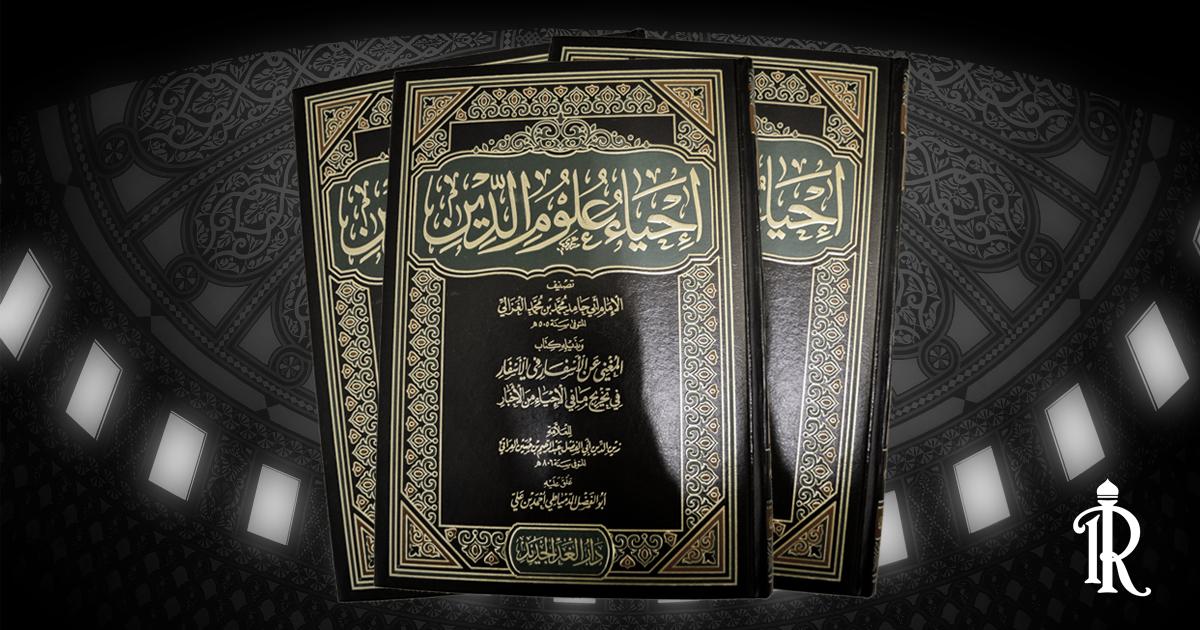 إِحْيَاءُ عُلُومِ الدِّينِ
تصنيف
الإمام أبي حامد محمد بن محمد الغزالي
المتوفى سنة ٥٠٥ هـ
وبذيله كتاب
المغني عن الأسفار في الأسفار
في تخريج ما في الإحياء من الأخبار
للعلامة
زين الدين أبي الفضل عبد الرحيم بن حسين العراقي
المتوفى سنة ٨٠٦ هـ
علق عليه
أبو الفضل الدمياطي أحمد بن علي
دار الغد الجديد
إِحْيَاءُ
R